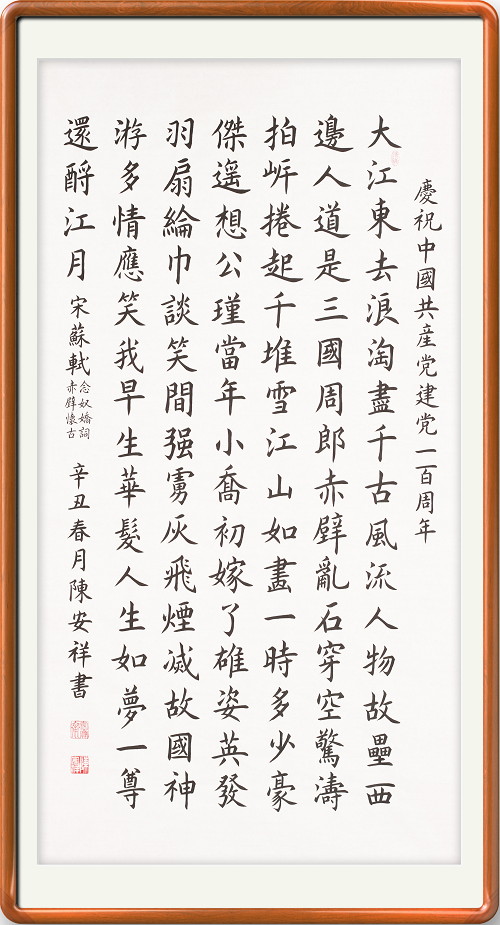 慶祝中國共産党建党一百周年
大江東去浪淘盡千古風流人物故壘西
邊人道是三國周郎赤壁亂石穿空驚濤
拍岍捲起千堆雪江山如畫一時多少豪
傑遥想公瑾當年小喬初嫁了雄姿英發
羽扇綸巾談笑間强虜灰飛煙滅故國神
游多情應笑我早生華髮人生如夢一尊
還酹江月 宋蘇軾
念奴嬌詞
赤壁懷古
辛丑春月陳安祥書